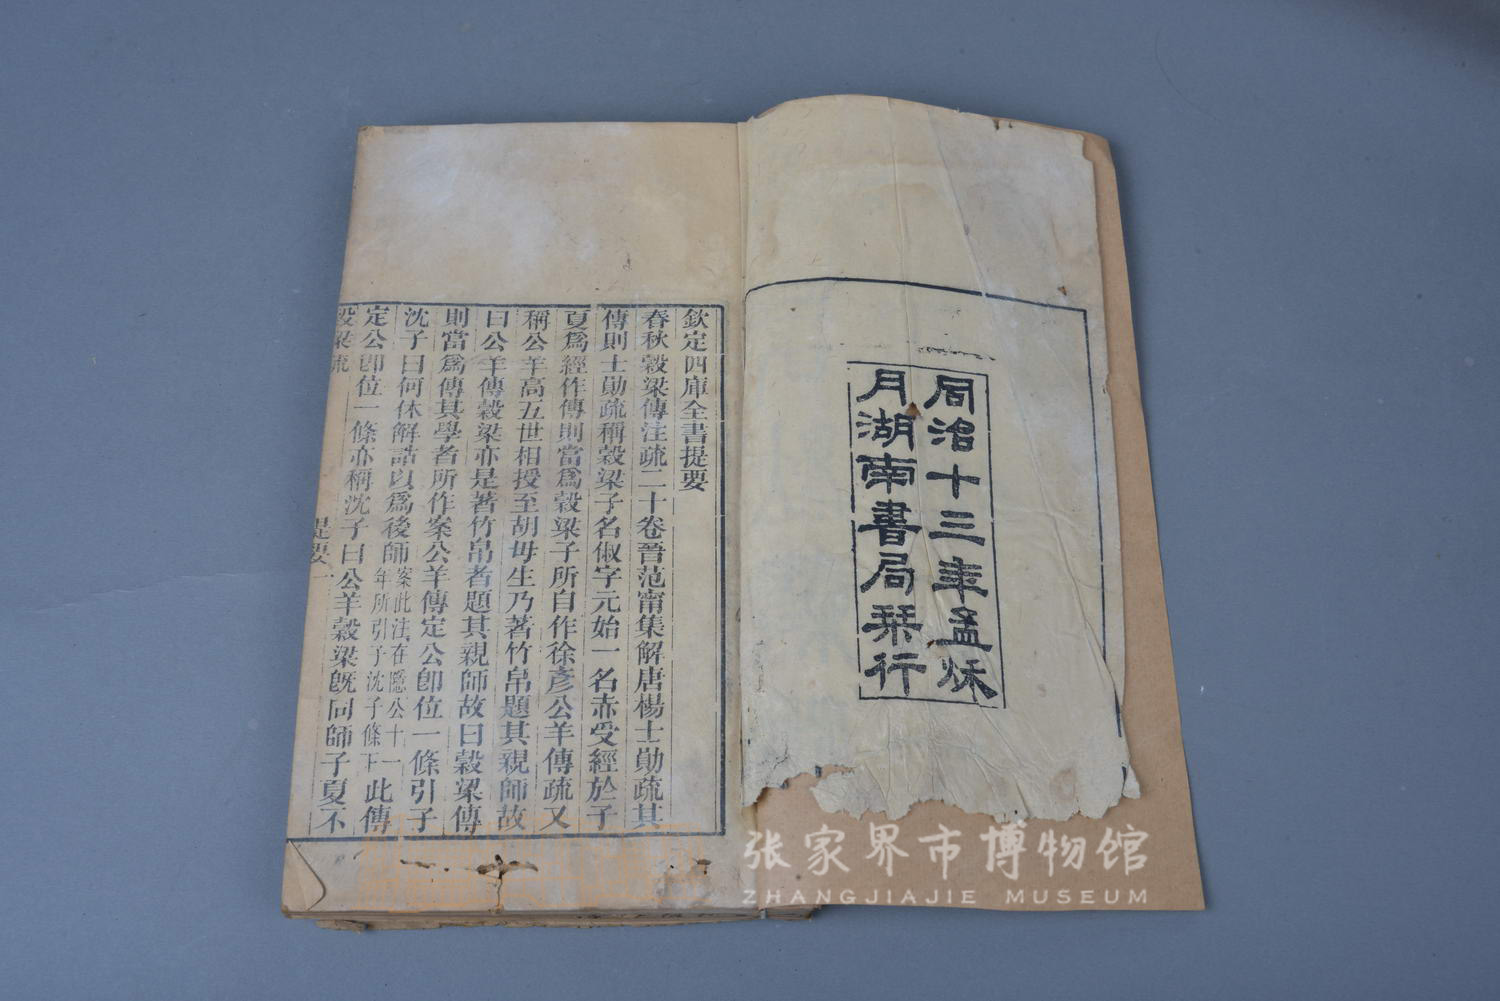 同治十三年孟烁
月湖南書局栞行
欽定四庫全書提要
春秋穀梁傳注疏二十卷晉范甯集解唐楊士勛疏其
傳則士勛疏稱穀梁子名俶字元始一名赤受經於子
夏爲經作傳則當爲穀梁子所自作徐彥公羊傳疏又
稱公羊高五世相授至胡毋生乃著竹帛題其親師故
曰公羊傳穀梁亦是著竹帛者題其親師故曰穀梁傳
則當爲傳其學者所作案公羊傳定公卽位一條引子
沈子曰何休解詁以爲後師案此注在隱公十一年所引子沈子條下此傳
定公卽位一條亦稱沈子曰公羊穀梁旣同師子夏不
穀梁疏 提要 一
张家界市博物馆
ZHANGJIAJIE MUSEUM